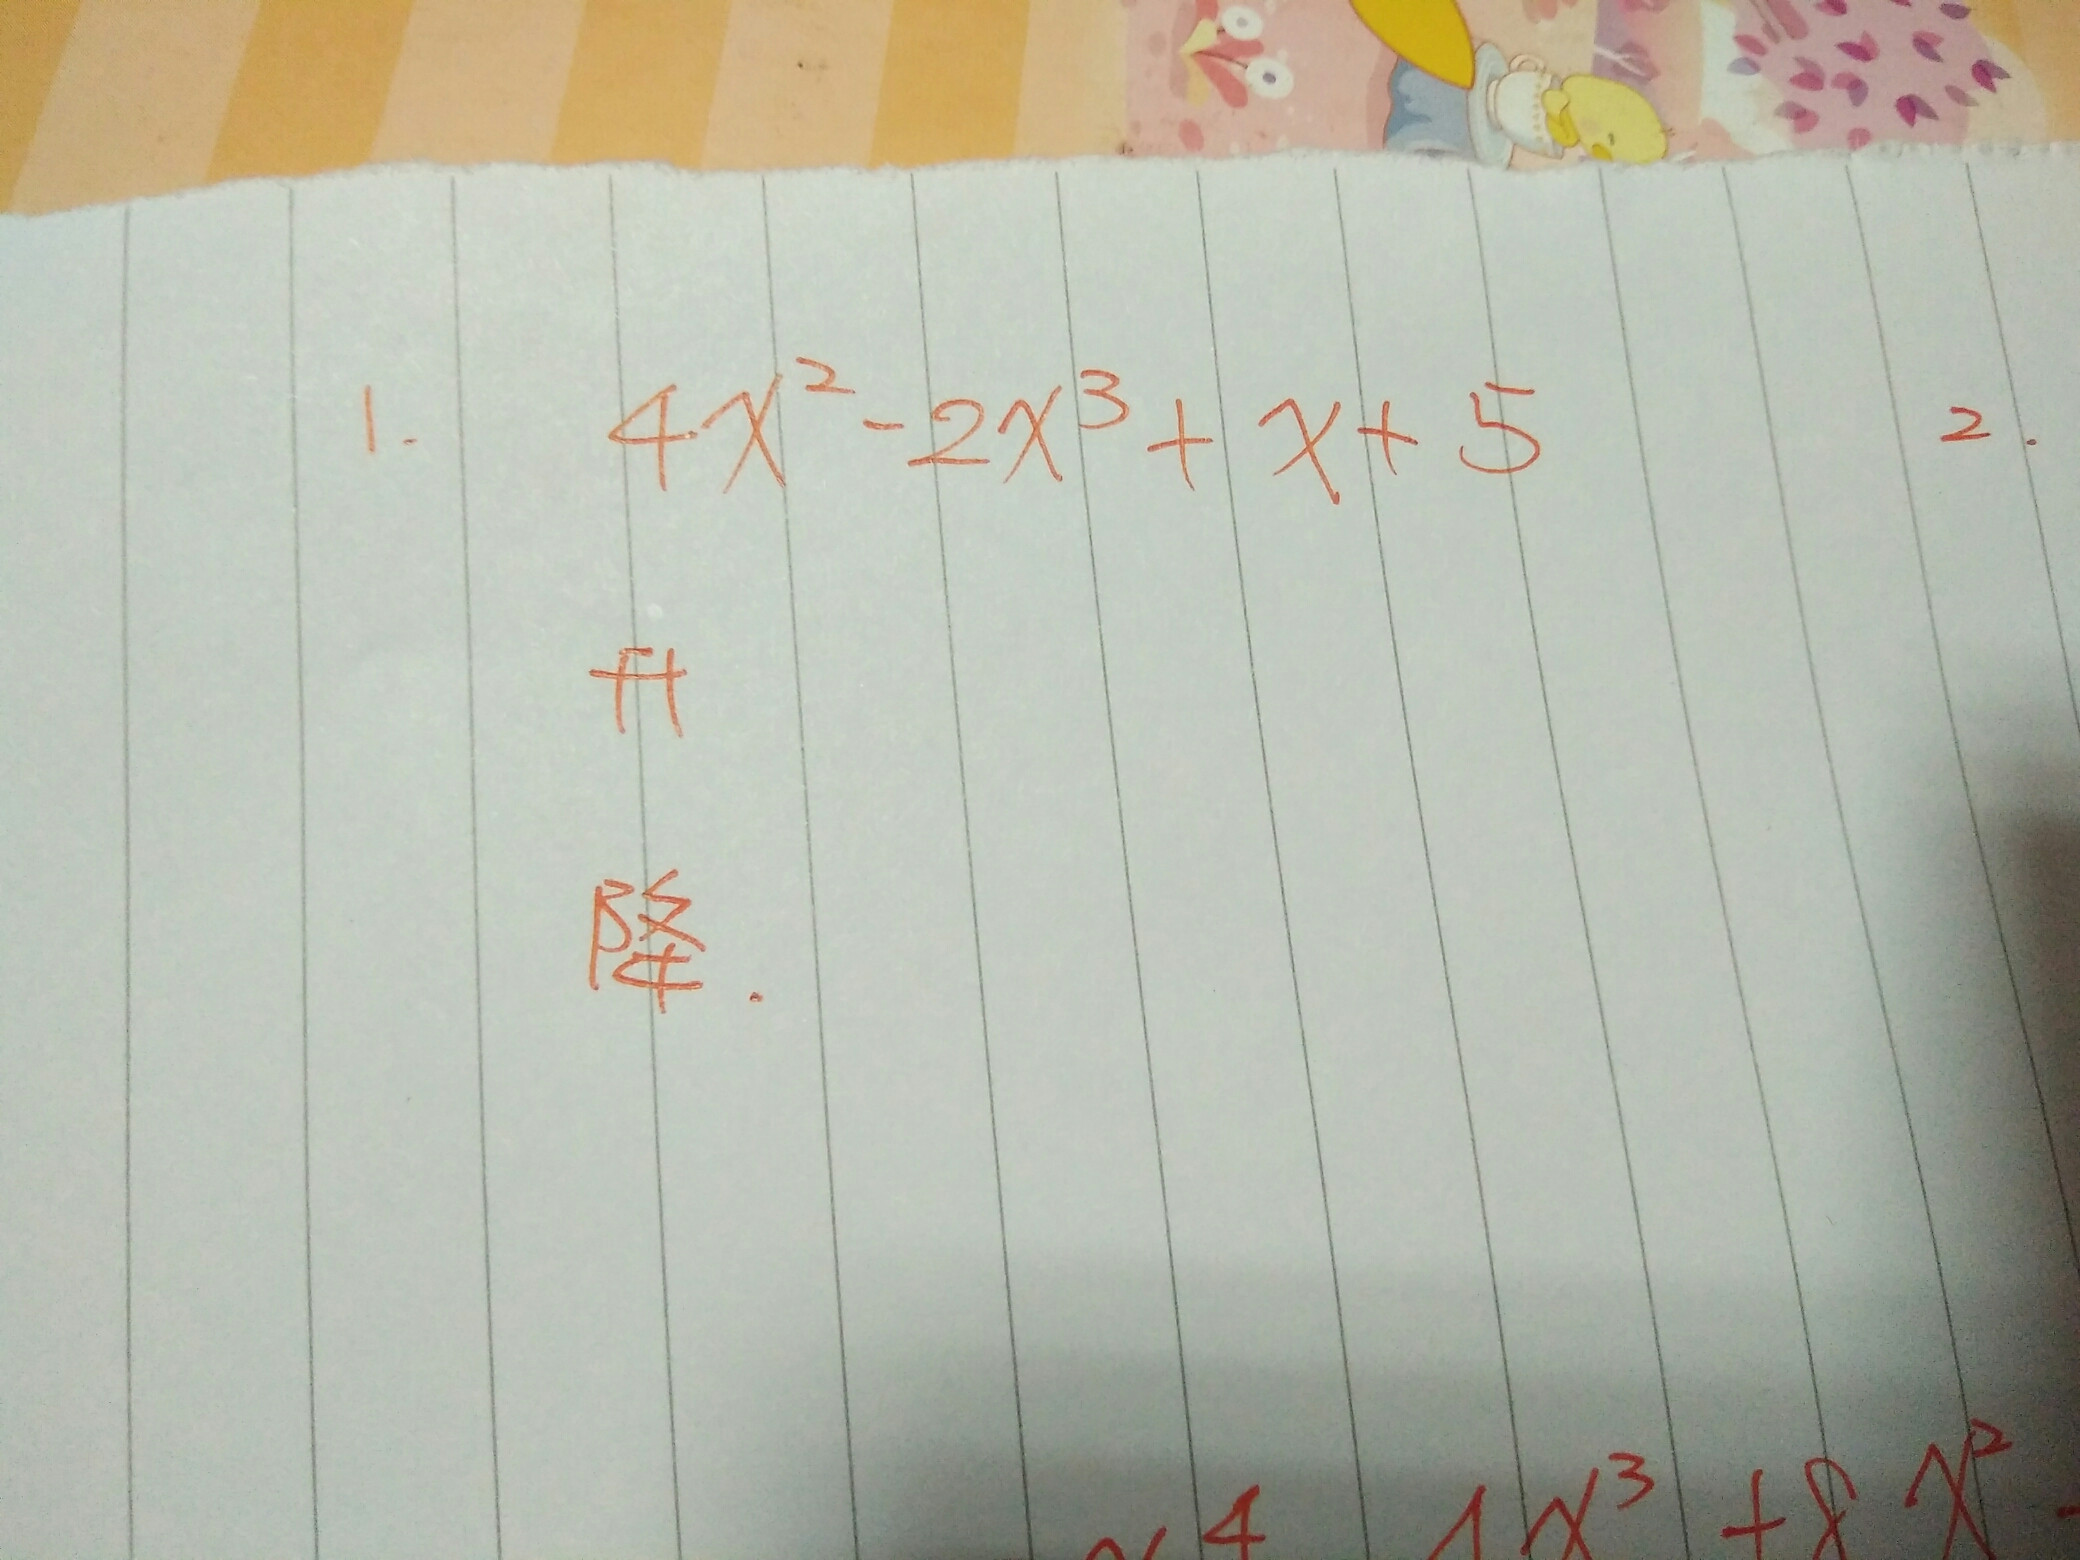 1. 4x² - 2x³ + x + 5 2.
升
降.
x⁴ 4x³ + 8x² -